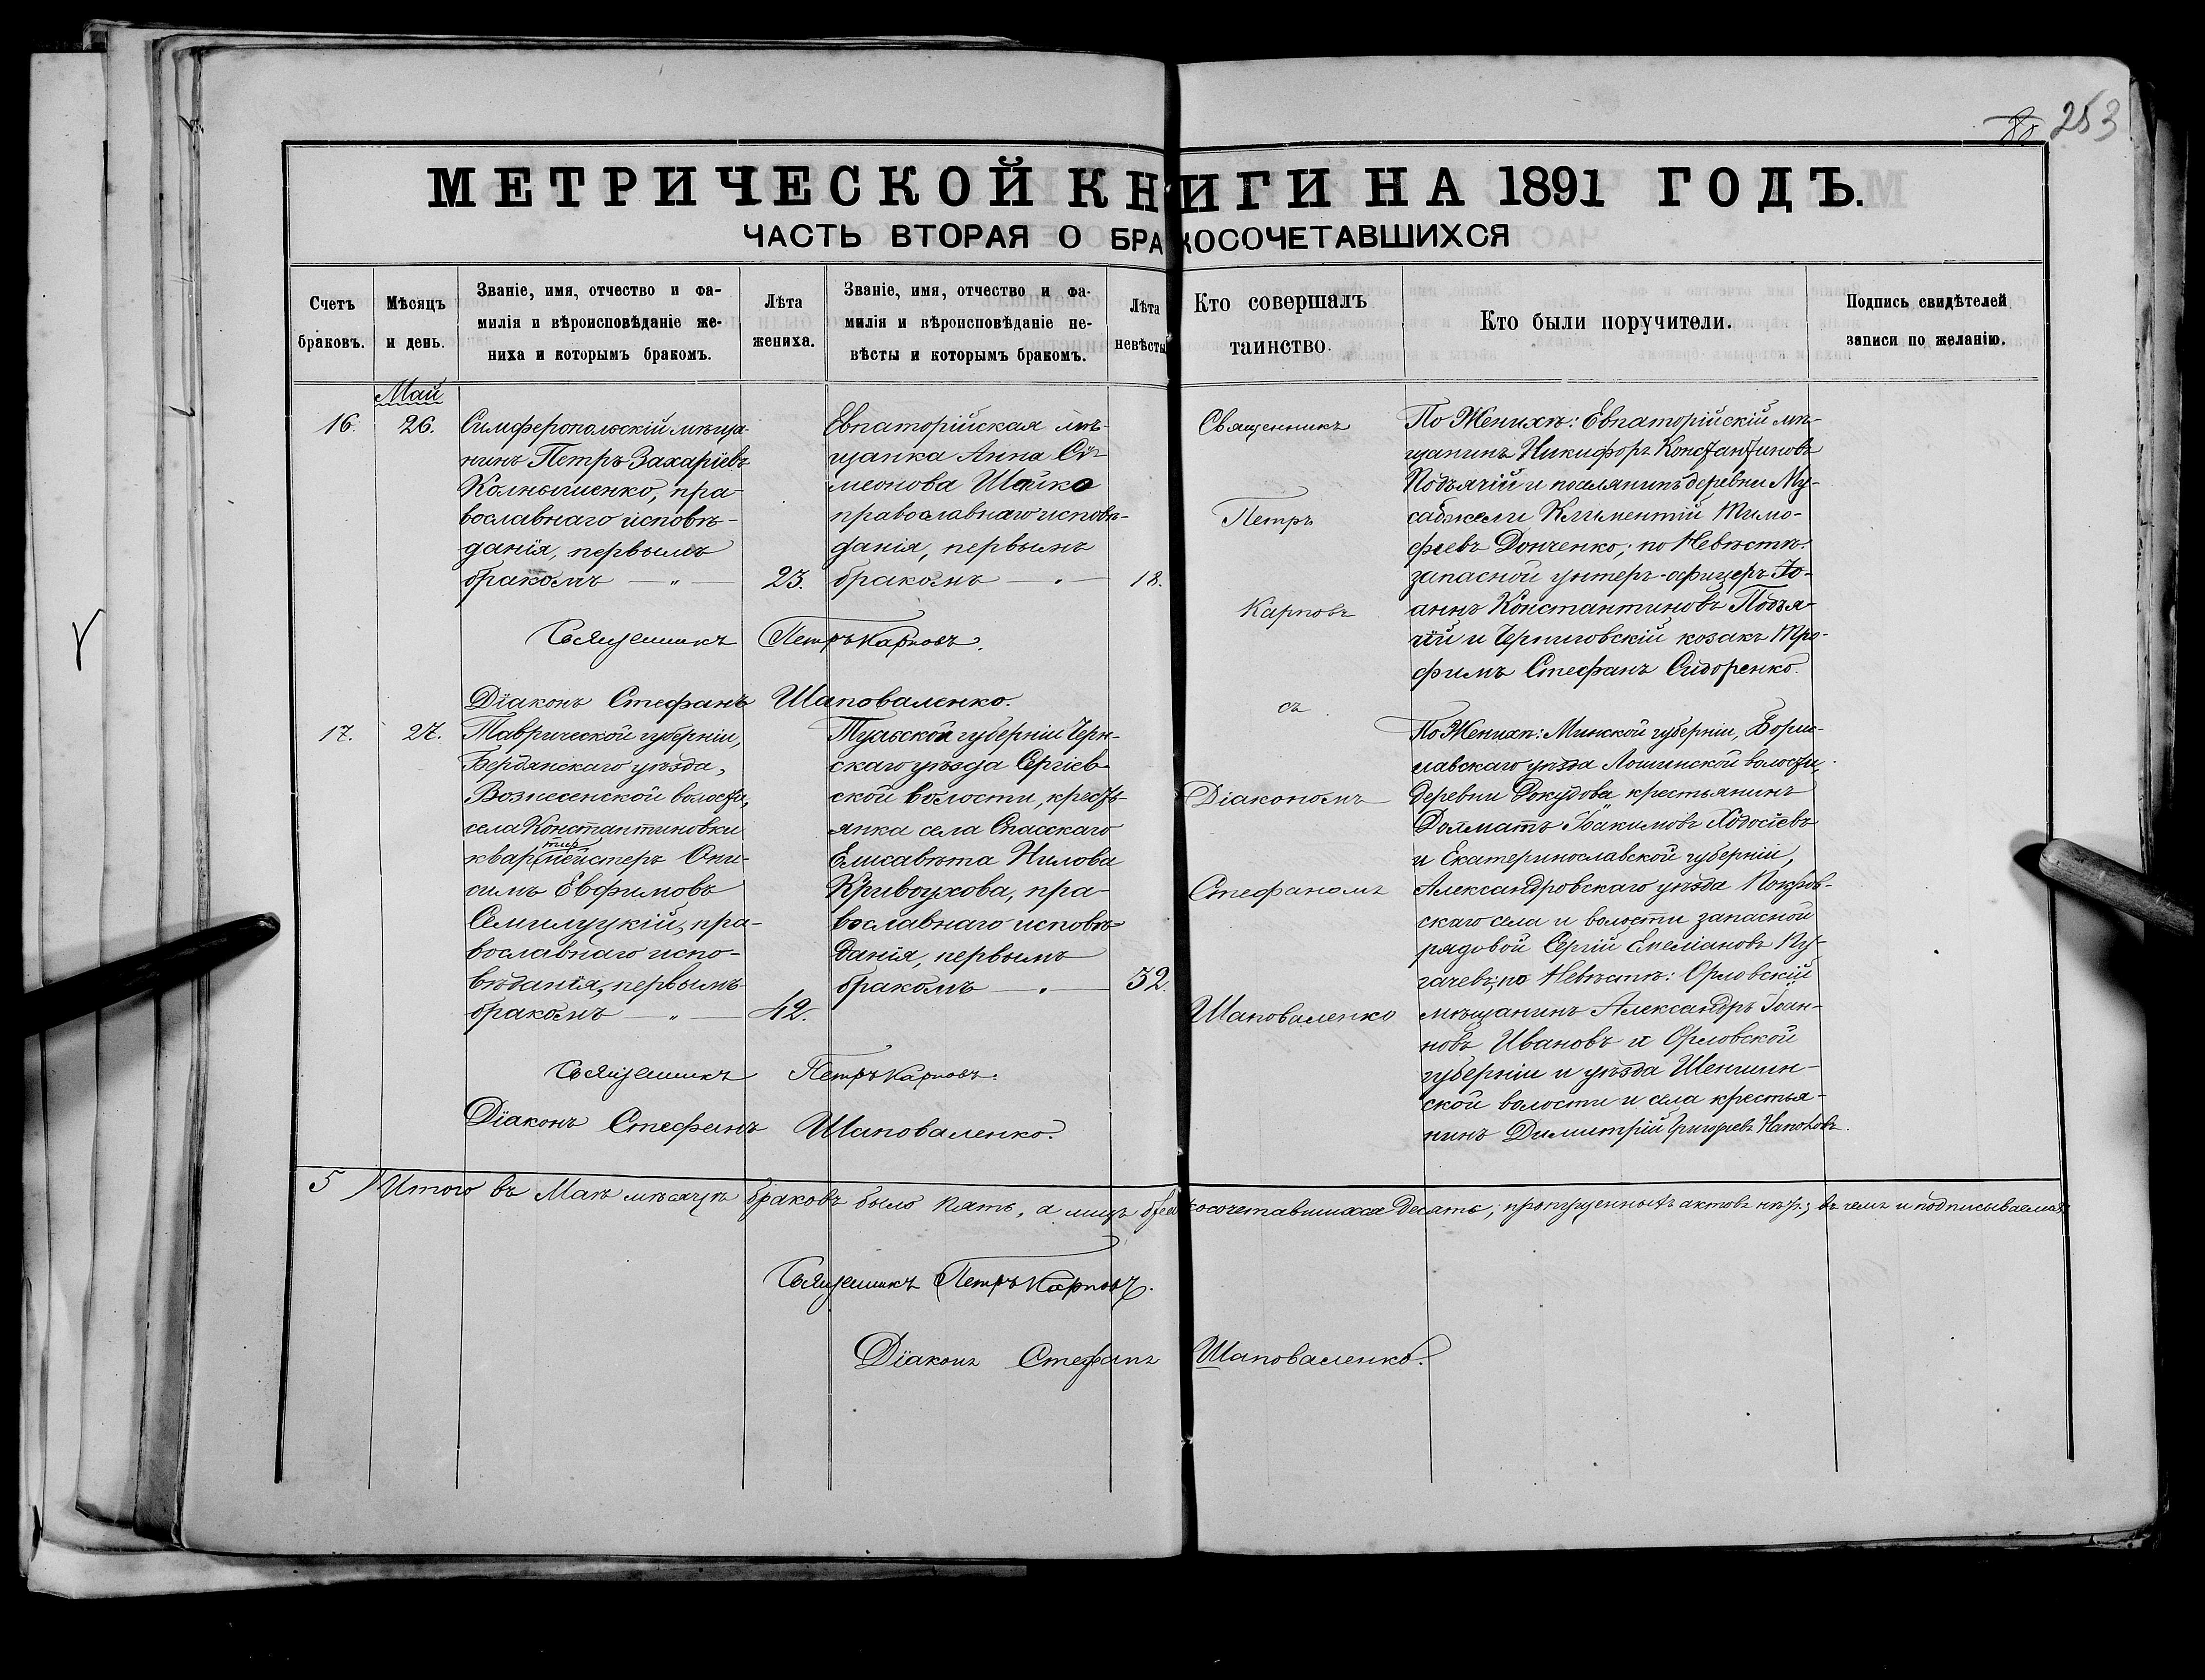 80 253
МЕТРИЧЕСКОЙ КНИГИ НА 1891 ГОДЪ.
ЧАСТЬ ВТОРАЯ О БРАКОСОЧЕТАВШИХСЯ
Счетъ
браковъ.
Мѣсяцъ
и день.
Званіе, имя, отчество и фа-
милія и вѣроисповѣданіе же-
ниха и которымъ бракомъ.
Лѣта
жениха.
Званіе, имя, отчество и фа-
милія и вѣроисповѣданіе не-
вѣсты и которымъ бракомъ.
Лѣта
невѣсты
Кто совершалъ
таинство.
Кто были поручители.
Подпись свидѣтелей
записи по желанію.
Май
16.
26.
Симферопольскій мѣща-
нинъ Петръ Захаріевъ
Колнышенко, пра-
вославнаго исповѣ-
данія, первымъ
бракомъ — „ —
23.
Евпаторійская мѣ-
щанка Анна Си-
меонова Шайко
православнаго исповѣ-
данія, первымъ
бракомъ — „ —
18.
Священникъ
Петръ
Карповъ
съ
Діакономъ
Стефаномъ
Шаповаленко
По Женихѣ: Евпаторійскій мѣ-
щанинъ Никифоръ Константиновъ
Подъячій и поселянинъ деревни Му-
сабжели Климентій Тимо-
феевъ Донченко; по Невѣстѣ:
запасной унтеръ-офицеръ Іо-
аннъ Константиновъ Подъя-
чій и Черниговскій козакъ Тро-
фимъ Стефанъ Сидоренко.
Священникъ Петръ Карповъ.
Діаконъ Стефанъ Шаповаленко.
17.
27.
Таврической губерніи,
Бердянскаго уѣзда,
Вознесенской волости,
села Константиновки
квартирмейстеръ Они-
симъ Евфимовъ
Семилуцкій, пра-
вославнаго испо-
вѣданія, первымъ
бракомъ — „ —
42.
Тульской губерніи Черн-
скаго уѣзда Сергіев-
ской волости, кресть-
янка села Спасскаго
Елисавета Нилова
Кривоухова, пра-
вославнаго исповѣ-
данія, первымъ
бракомъ — „ —
32.
По Женихѣ: Минской губерніи, Бори-
славскаго уѣзда Лошинской волости,
деревни Докудова крестьянинъ
Долматъ Іоакимовъ Ходосіевъ
и Екатеринославской губерніи,
Александровскаго уѣзда Покров-
скаго села и волости запасной
рядовой Сергій Емеліановъ Пу-
гачевъ; по Невѣстѣ: Орловскій
мѣщанинъ Александръ Іоан-
новъ Ивановъ и Орловской
губерніи и уѣзда Шеншин-
ской волости и села крестья-
нинъ Димитрій Григорьевъ
Священникъ Петръ Карповъ.
Діаконъ Стефанъ Шаповаленко.
5 / Итого въ Маѣ мѣсяцѣ браковъ было пять, а лицъ бракосочетавшихся десять; пропущенныхъ актовъ нѣтъ; въ чемъ и подписываемся:
Священникъ Петръ Карповъ.
Діаконъ Стефанъ Шаповаленко.